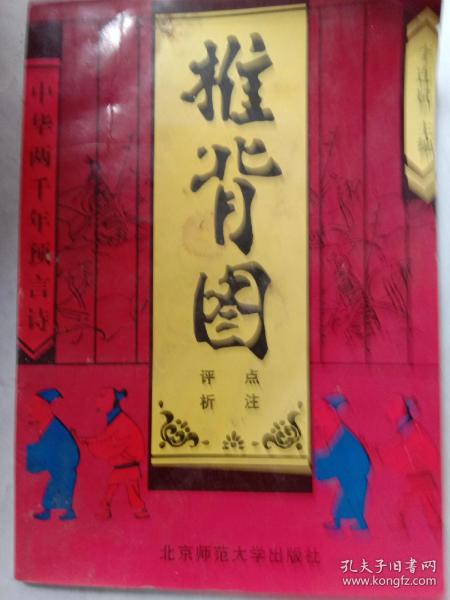 推背图
点注
评析
中华两千年预言诗
主编
北京师范大学出版社
孔夫子旧书网
www.kongfz.com